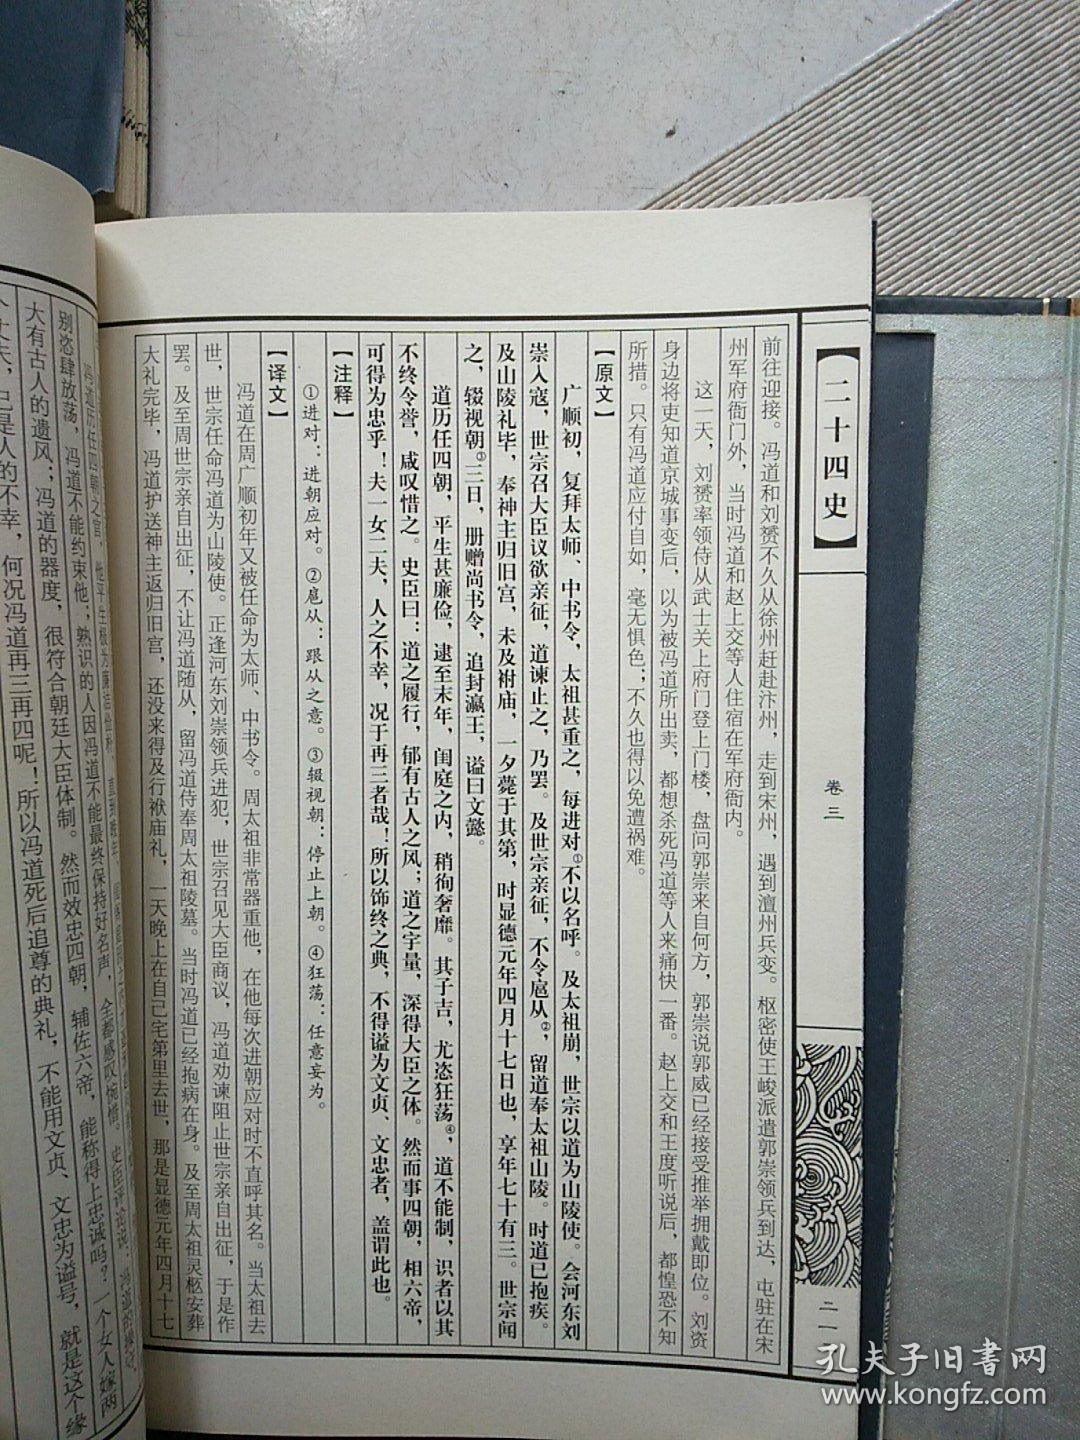 【二十四史】
卷三
二一
前往迎接。冯道和刘赟不久从徐州赶赴汴州，走到宋州，遇到澶州兵变。枢密使王峻派遣郭崇领兵到达，屯驻在宋
州军府衙门外，当时冯道和赵上交等人住宿在军府衙内。
这一天，刘赟率领侍从武士关上府门登上门楼，盘问郭崇来自何方，郭崇说郭威已经接受推举拥戴即位。刘赟
身边将吏知道京城事变后，以为被冯道所出卖，都想杀死冯道等人来痛快一番。赵上交和王度听说后，都惶恐不知
所措。只有冯道应付自如，毫无惧色；不久也得以免遭祸难。
【原文】
广顺初，复拜太师、中书令，太祖甚重之，每进对①不以名呼。及太祖崩，世宗以道为山陵使。会河东刘
崇入寇，世宗召大臣议欲亲征，道谏止之，乃罢。及世宗亲征，不令扈从②，留道奉太祖山陵。时道已抱疾。
及山陵礼毕，奉神主归旧宫，未及祔庙，一夕薨于其第，时显德元年四月十七日也，享年七十有三。世宗闻
之，辍视朝③三日，册赠尚书令，追封瀛王，谥曰文懿。
道历任四朝，平生甚廉俭，逮至末年，闺庭之内，稍徇奢靡。其子吉，尤恣狂荡④，道不能制，识者以其
不终令誉，咸叹惜之。史臣曰：道之履行，郁有古人之风；道之宇量，深得大臣之体。然而事四朝，相六帝，
可得为忠乎！夫一女二夫，人之不幸，况于再三者哉！所以饰终之典，不得谥为文贞、文忠者，盖谓此也。
【注释】
①进对：进朝应对。②扈从：跟从之意。③辍视朝：停止上朝。④狂荡：任意妄为。
【译文】
冯道在周广顺初年又被任命为太师、中书令。周太祖非常器重他，在他每次进朝应对时不直呼其名。当太祖去
世，世宗任命冯道为山陵使。正逢河东刘崇领兵进犯，世宗召见大臣商议，冯道劝谏阻止世宗亲自出征，于是作
罢。及至周世宗亲自出征，不让冯道随从，留冯道侍奉周太祖陵墓。当时冯道已经抱病在身。及至周太祖灵柩安葬
大礼完毕，冯道护送神主返归旧宫，还没来得及行祔庙礼，一天晚上在自己宅第里去世，那是显德元年四月十七
冯道历任四朝之官，他平生极为廉洁俭朴，直到晚年，
别恣肆放荡，冯道不能约束他；熟识的人因冯道不能最终保持好名声，全都感叹惋惜。史臣评论说：冯道的操守，
大有古人的遗风；冯道的器度，很符合朝廷大臣体制。然而效忠四朝，辅佐六帝，能称得上忠诚吗？一个女人嫁两
个丈夫，已是人的不幸，何况冯道再三再四呢！所以冯道死后追尊的典礼，不能用文贞、文忠为谥号，就是这个缘
孔夫子旧书网
www.kongfz.com